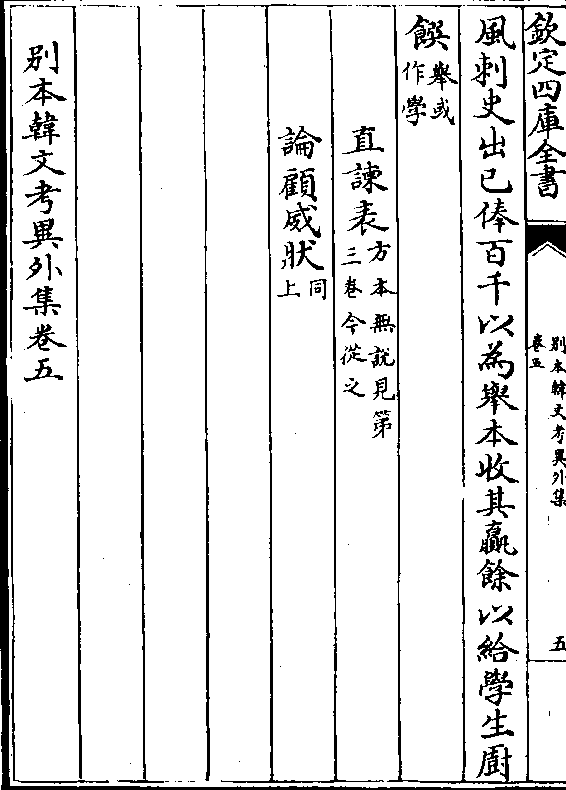 欽定四庫全書
別本韓文考異外集
卷五
五
風刺史出已俸百千以為舉本收其贏餘以給學生厨
饌舉或作學
直諫表方本無說見第三卷今從之
論顧威狀同上
別本韓文考異外集卷五